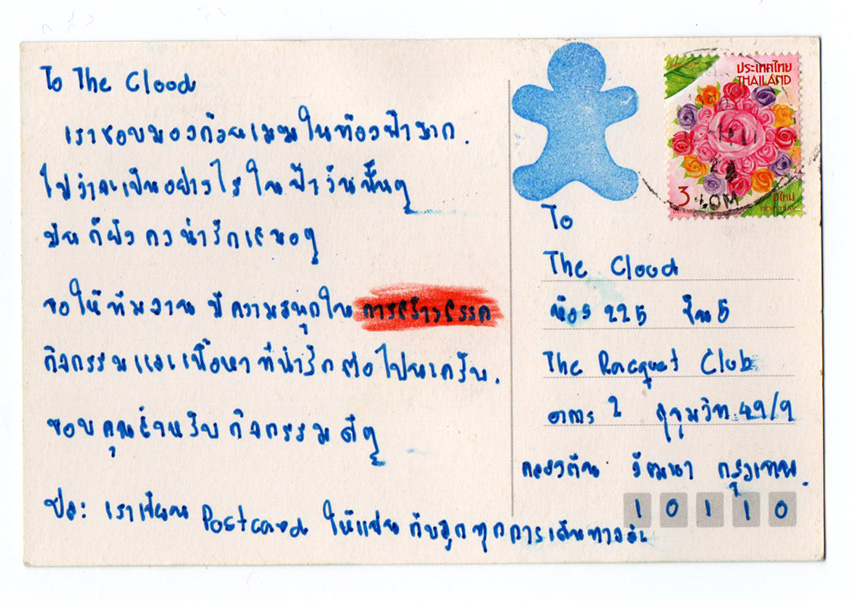 To The Cloud
เราชอบมองก้อนเมฆในท้องฟ้ามาก.
ไม่ว่าจะเป็นอย่างไร ในฟ้าวันนั้นๆ
มันก็ยังคงน่ารักเสมอๆ
ขอให้ทีมงาน มีความสนุกใน การสร้างสรรค์
กิจกรรมและเนื้อหาที่น่ารักต่อไปนะครับ.
ขอบคุณสำหรับ กิจกรรม ดีๆ
ปล: เราเขียน Postcard ให้แฟน กับลูกทุกการเดินทาง
ประเทศไทย
THAILAND
3
To
The Cloud
ห้อง 225 ชั้น 5
The Racquet Club
อาคาร 2 สุขุมวิท 49/9
คลองตัน วัฒนา กรุงเทพฯ
10110